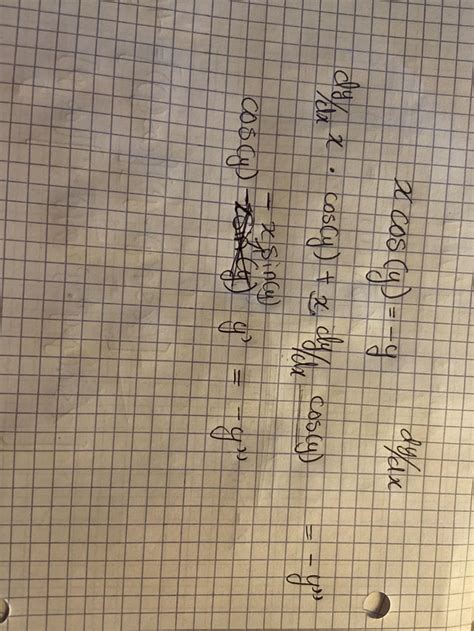 x cos(y) = -y dy/dx
dy/dx x · cos(y) + x dy/dx cos(y) = -y"
- x sin(y)
cos(y) y' = -y"